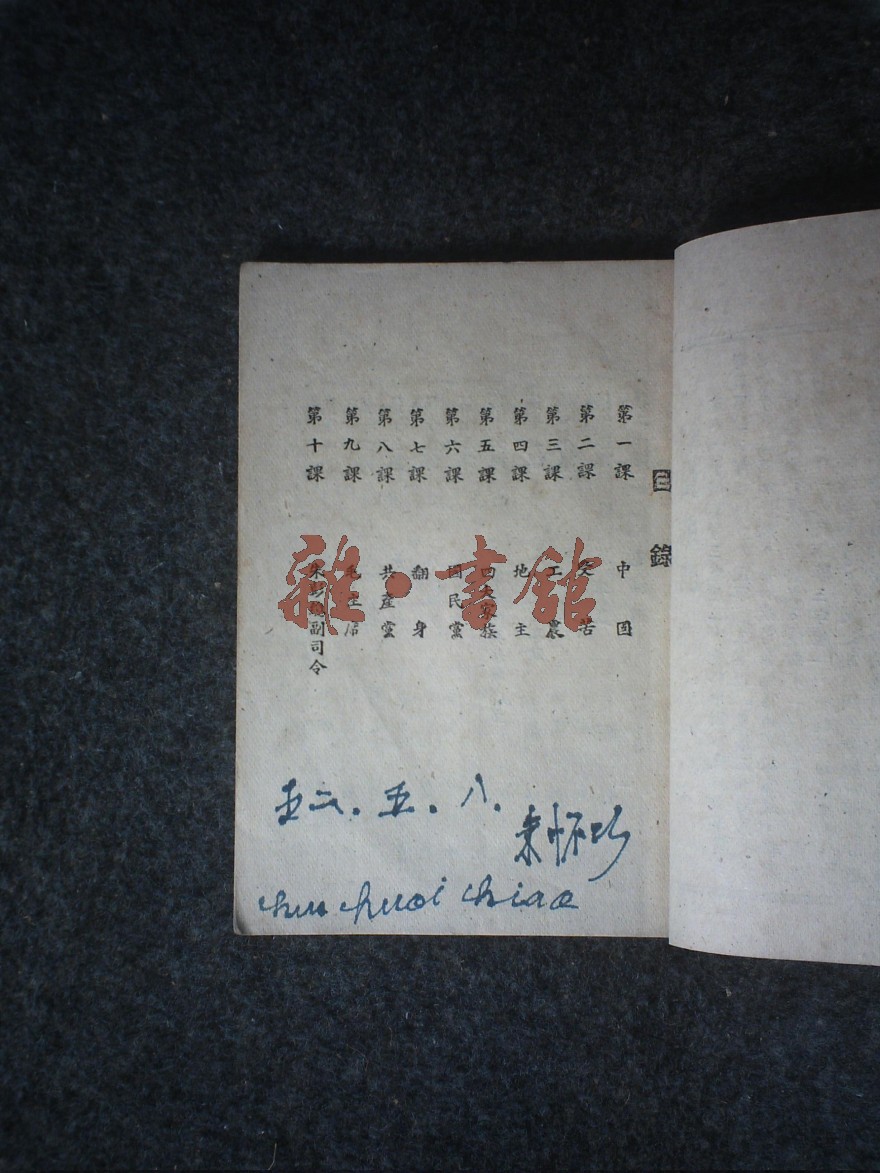 目錄
第一課 中国
第二課 受苦
第三課 工農
第四課 地主
第五課 四大家族
第六課 國民黨
第七課 翻身
第八課 共產黨
第九課 毛主席
第十課 朱彭總副司令
雜·書館
五二.五.八.
朱怀巧
chu huai chiao